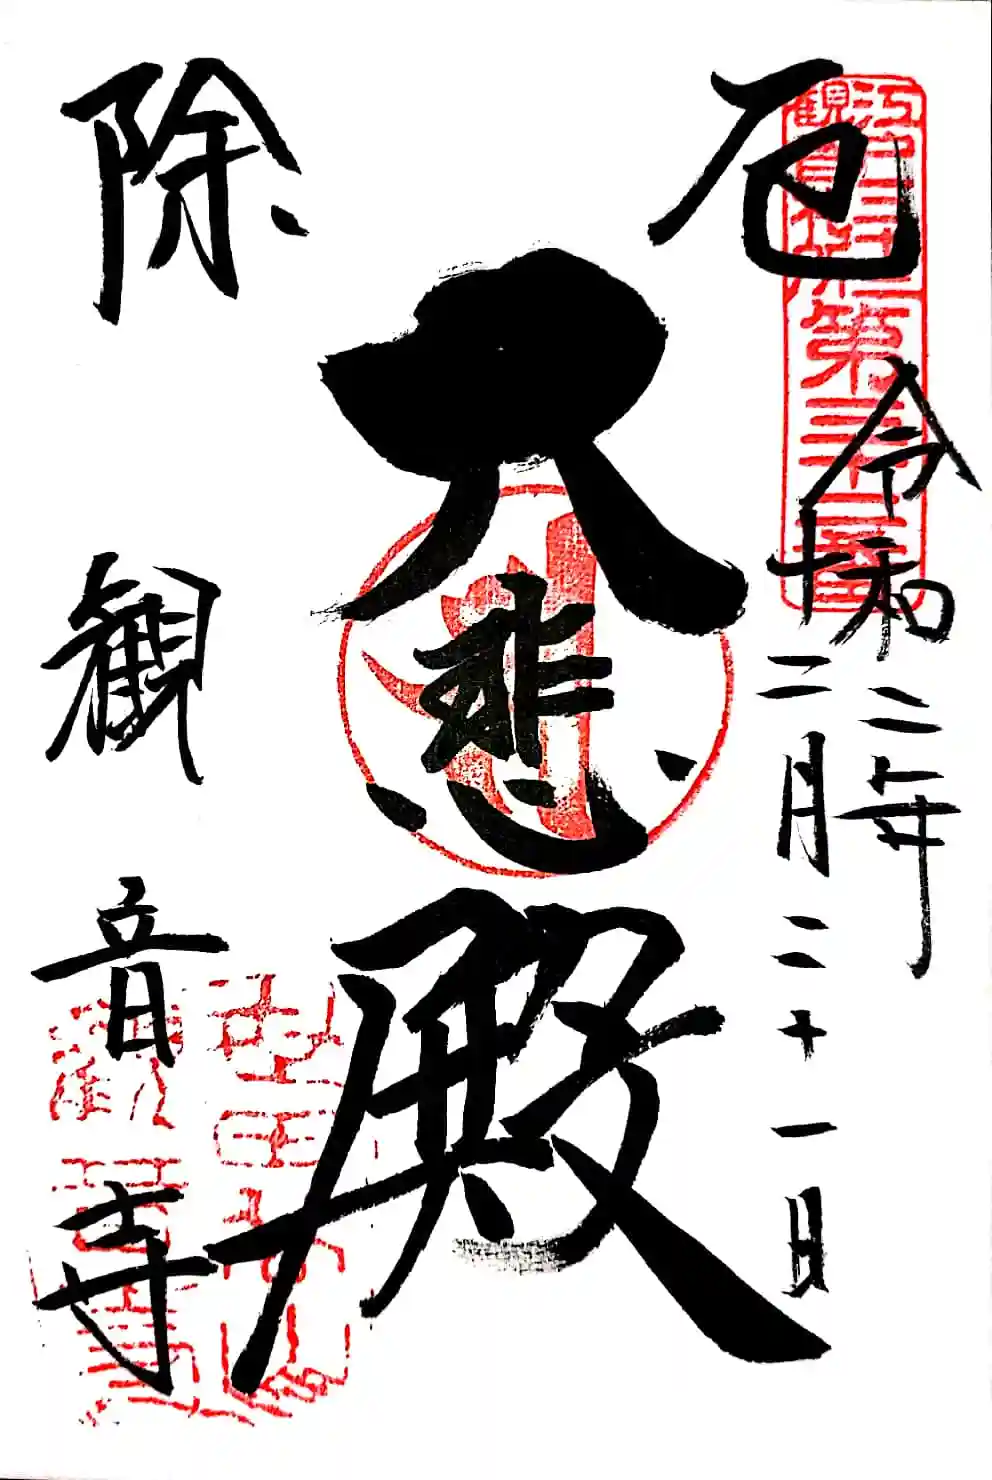 江戸三十三
観音札所
第三十二番
厄除
令和二年
十二月二十一日
大悲殿
観音寺